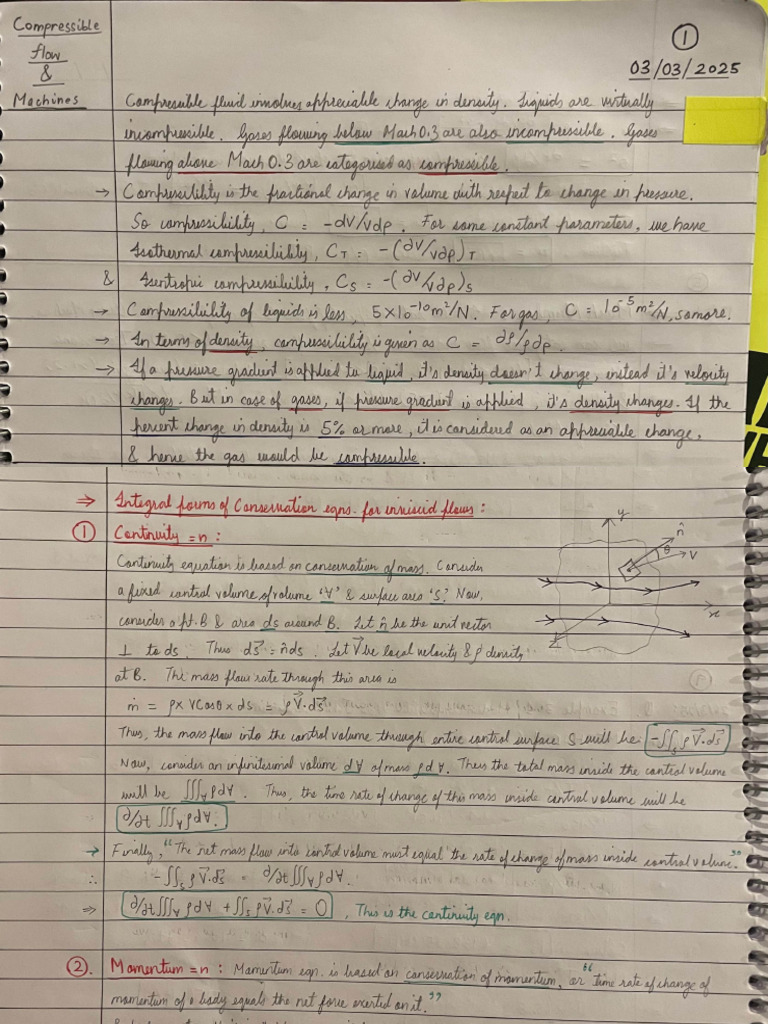 Compressible
flow
&
Machines
1
03/03/2025
Compressible fluid involves appreciable change in density. Liquids are virtually
incompressible. Gases flowing below Mach 0.3 are also incompressible. Gases
flowing above Mach 0.3 are categorised as compressible.
→ Compressibility is the fractional change in volume with respect to change in pressure.
So compressibility, C = -dV/Vdp. For some constant parameters, we have
Isothermal compressibility, C_T = -(∂V/V∂p)_T
& Isentropic compressibility, C_S = -(∂V/V∂p)_S
→ Compressibility of liquids is less, 5×10⁻¹⁰ m²/N. For gas, C = 10⁻⁵ m²/N, so more.
→ In terms of density, compressibility is given as C = ∂ρ/ρ∂p.
→ If a pressure gradient is applied to liquid, it's density doesn't change, instead it's velocity
changes. But in case of gases, if pressure gradient is applied, it's density changes. If the
percent change in density is 5% or more, it is considered as an appreciable change,
& hence the gas would be compressible.
⇒ Integral forms of Conservation eqns. for inviscid flows:
① Continuity =n:
Continuity equation is based on conservation of mass. Consider
a fixed control volume, of volume '∀' & surface area 'S'. Now,
consider a pt. B & area ds around B. Let n̂ be the unit vector
⊥ to ds. Thus ds⃗ = n̂ds. Let V⃗ be local velocity & ρ density
at B. The mass flow rate through this area is
ṁ = ρ×VCosθ×ds = ρV⃗.ds⃗
y
n̂
θ
V
x
Z
Thus, the mass flow into the control volume through entire control surface S will be -∬_S ρV⃗.ds⃗
Now, consider an infinitesimal volume d∀ of mass ρd∀. Thus the total mass inside the control volume
will be ∭_∀ ρd∀. Thus, the time rate of change of this mass inside control volume will be
∂/∂t ∭_∀ ρd∀.
→ Finally, "The net mass flow into control volume must equal the rate of change of mass inside control volume."
∴ -∬_S ρV⃗.ds⃗ = ∂/∂t ∭_∀ ρd∀.
⇒ ∂/∂t ∭_∀ ρd∀ + ∬_S ρV⃗.ds⃗ = 0, This is the continuity eqn.
②. Momentum =n: Momentum eqn. is based on conservation of momentum, or "time rate of change of
momentum of a body equals the net force exerted on it."